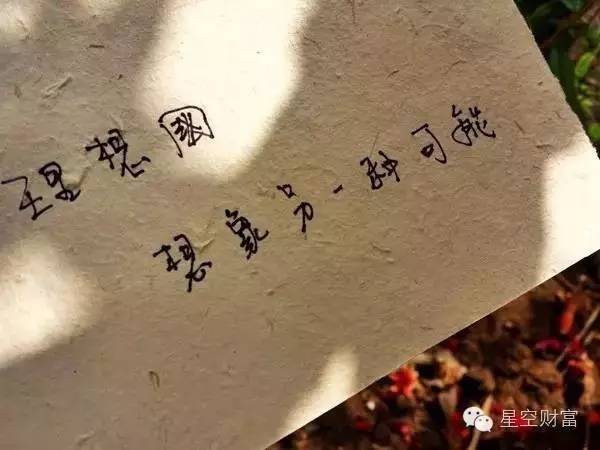 理想國
想象另一种可能
星空财富